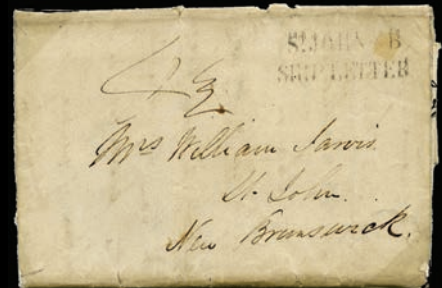 St JOHN B
SHIP LETTER
4½
Mrs William Jarvis
St John.
New Brunswick.